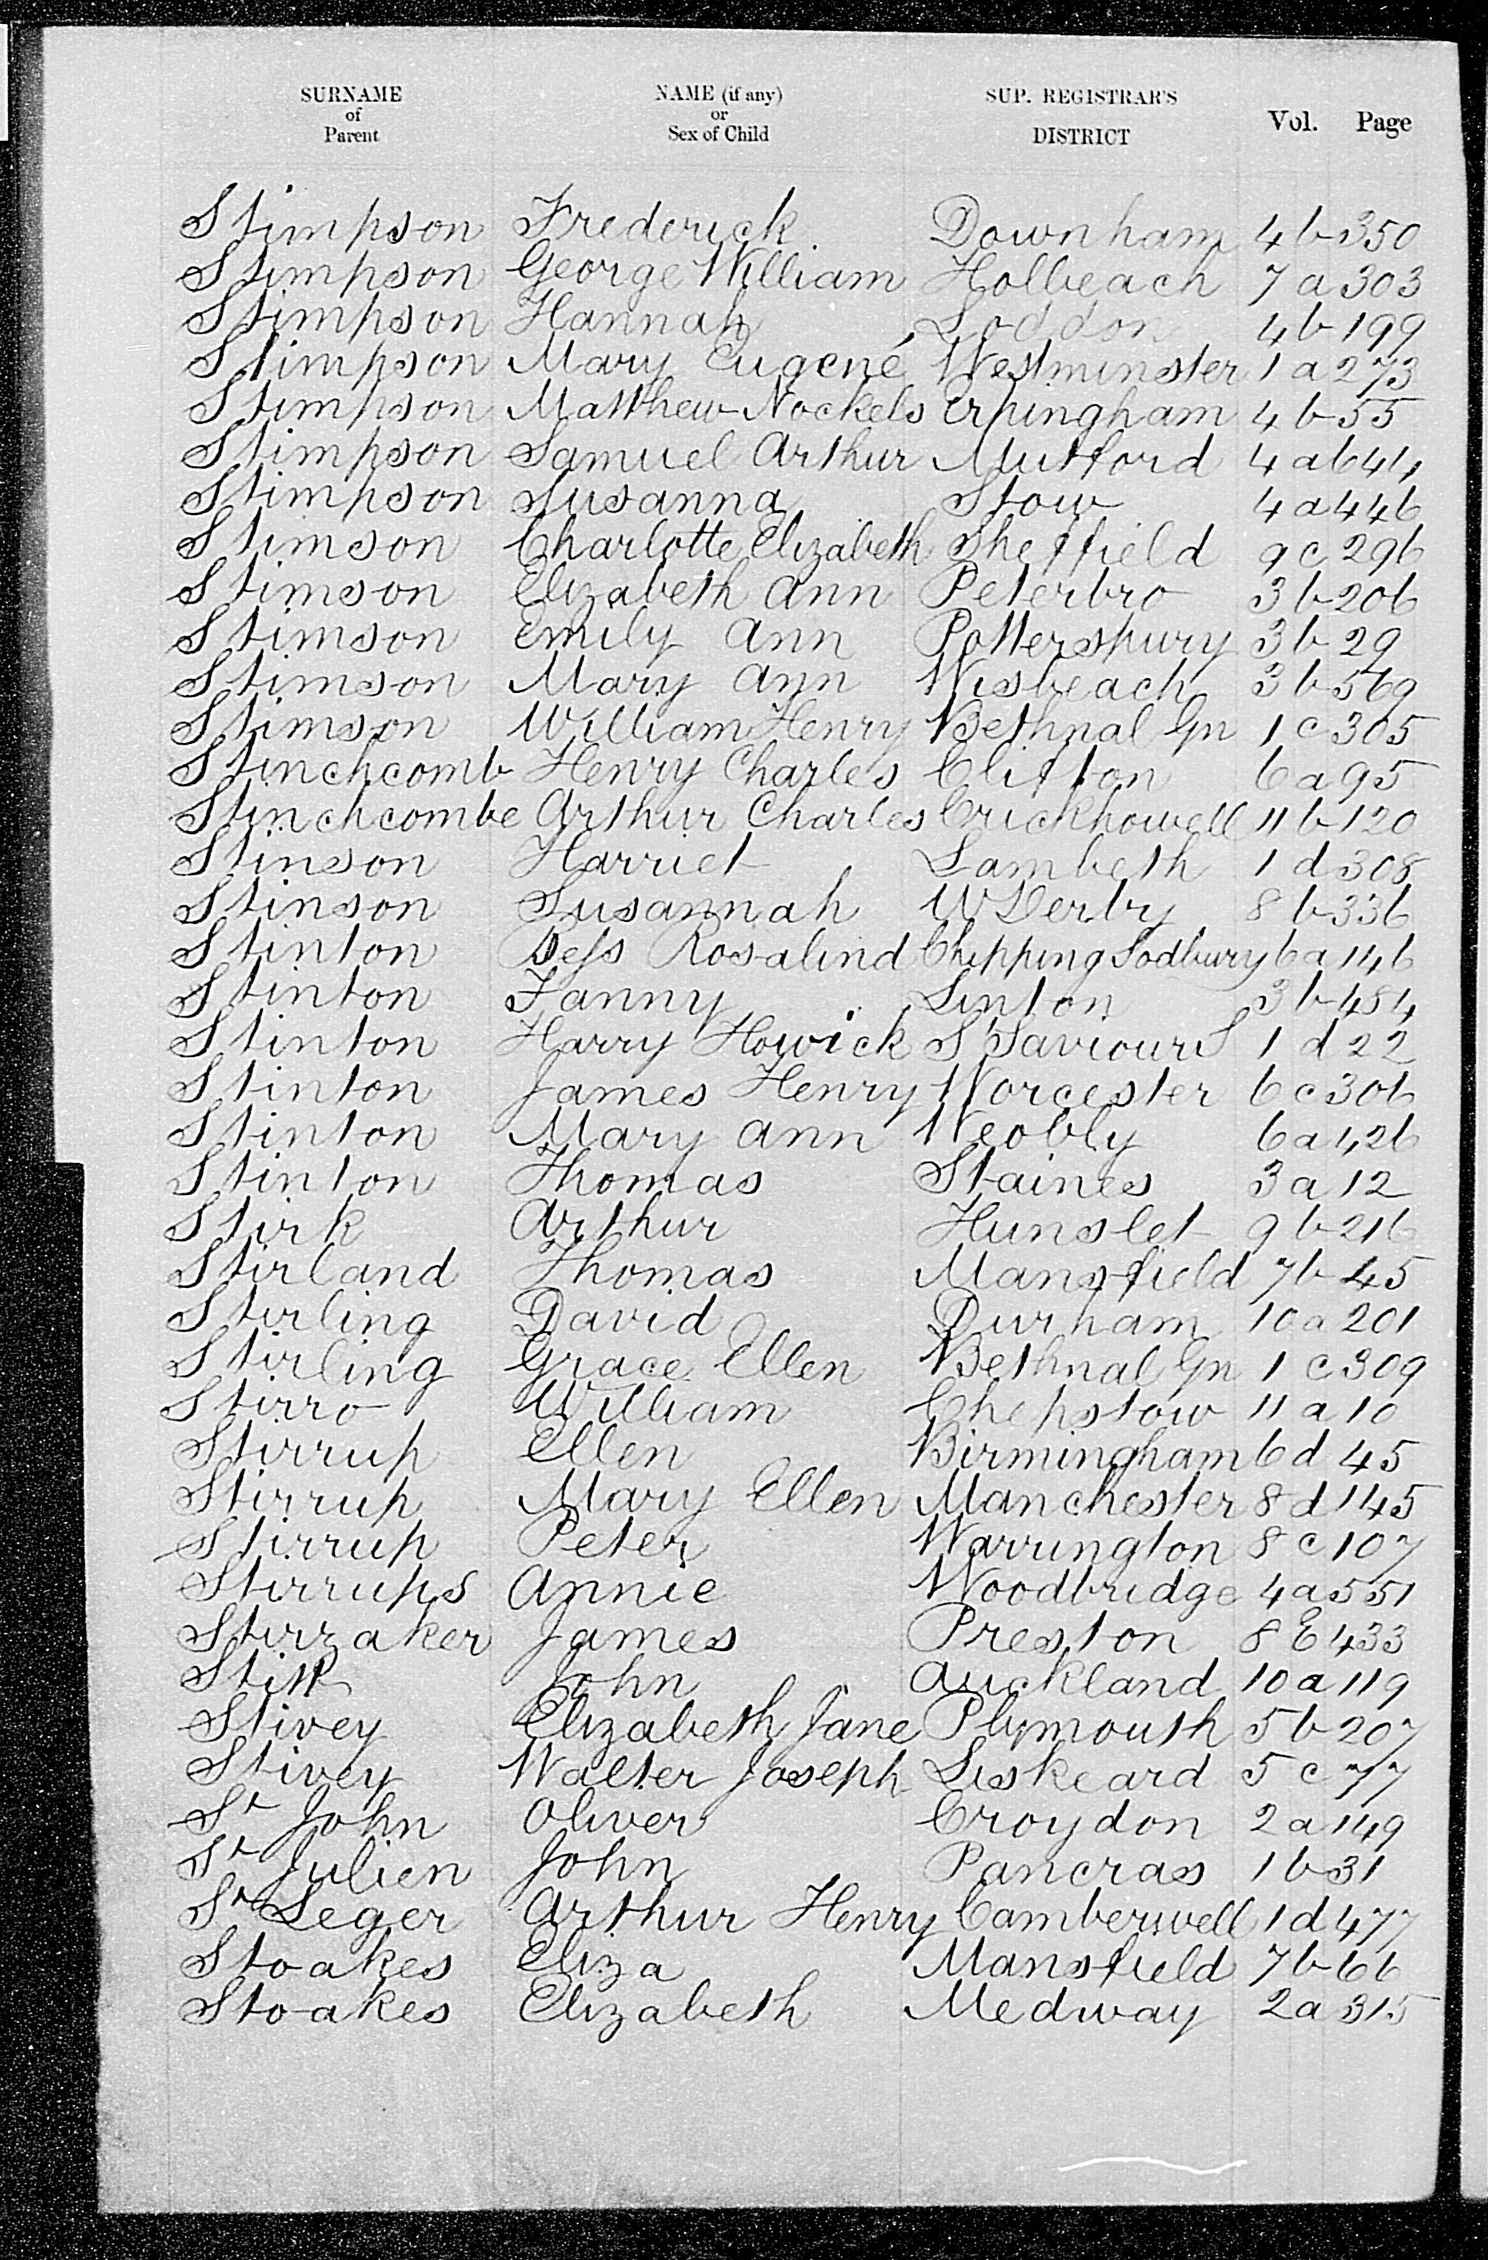 SURNAME of Parent NAME (if any) or Sex of Child SUP. REGISTRAR'S DISTRICT Vol. Page
Stimpson Frederick Downham 4b 350
Stimpson George William Holbeach 7a 303
Stimpson Hannah Loddon 4b 199
Stimpson Mary Eugené Westminster 1a 273
Stimpson Matthew Nockels Erpingham 4b 55
Stimpson Samuel Arthur Mutford 4a 644
Stimpson Susanna Stow 4a 446
Stimson Charlotte Elizabeth Sheffield 9c 296
Stimson Elizabeth Ann Peterbro 3b 206
Stimson Emily Ann Potterspury 3b 29
Stimson Mary Ann Wisbeach 3b 569
Stimson William Henry Bethnal Gn 1c 305
Stinchcomb Henry Charles Clifton 6a 95
Stinchcombe Arthur Charles Crickhowell 11b 120
Stinson Harriet Lambeth 1d 308
Stinson Susannah W Derby 8b 336
Stinton Bess Rosalind Chipping Sodbury 6a 146
Stinton Fanny Linton 3b 484
Stinton Harry Howick S Saviour S 1d 22
Stinton James Henry Worcester 6c 306
Stinton Mary Ann Weobly 6a 426
Stinton Thomas Staines 3a 12
Stirk Arthur Hunslet 9b 216
Stirland Thomas Mansfield 7b 45
Stirling David Durham 10a 201
Stirling Grace Ellen Bethnal Gn 1c 309
Stirro William Chepstow 11a 10
Stirrup Ellen Birmingham 6d 45
Stirrup Mary Ellen Manchester 8d 145
Stirrup Peter Warrington 8c 107
Stirrups Annie Woodbridge 4a 551
Stirzaker James Preston 8E 433
John Auckland 10a 119
Stivey Elizabeth Jane Plymouth 5b 207
Stivey Walter Joseph Liskeard 5c 77
St John Oliver Croydon 2a 149
St Julien John Pancras 1b 31
St Leger Arthur Henry Camberwell 1d 477
Stoakes Eliza Mansfield 7b 66
Stoakes Elizabeth Medway 2a 315